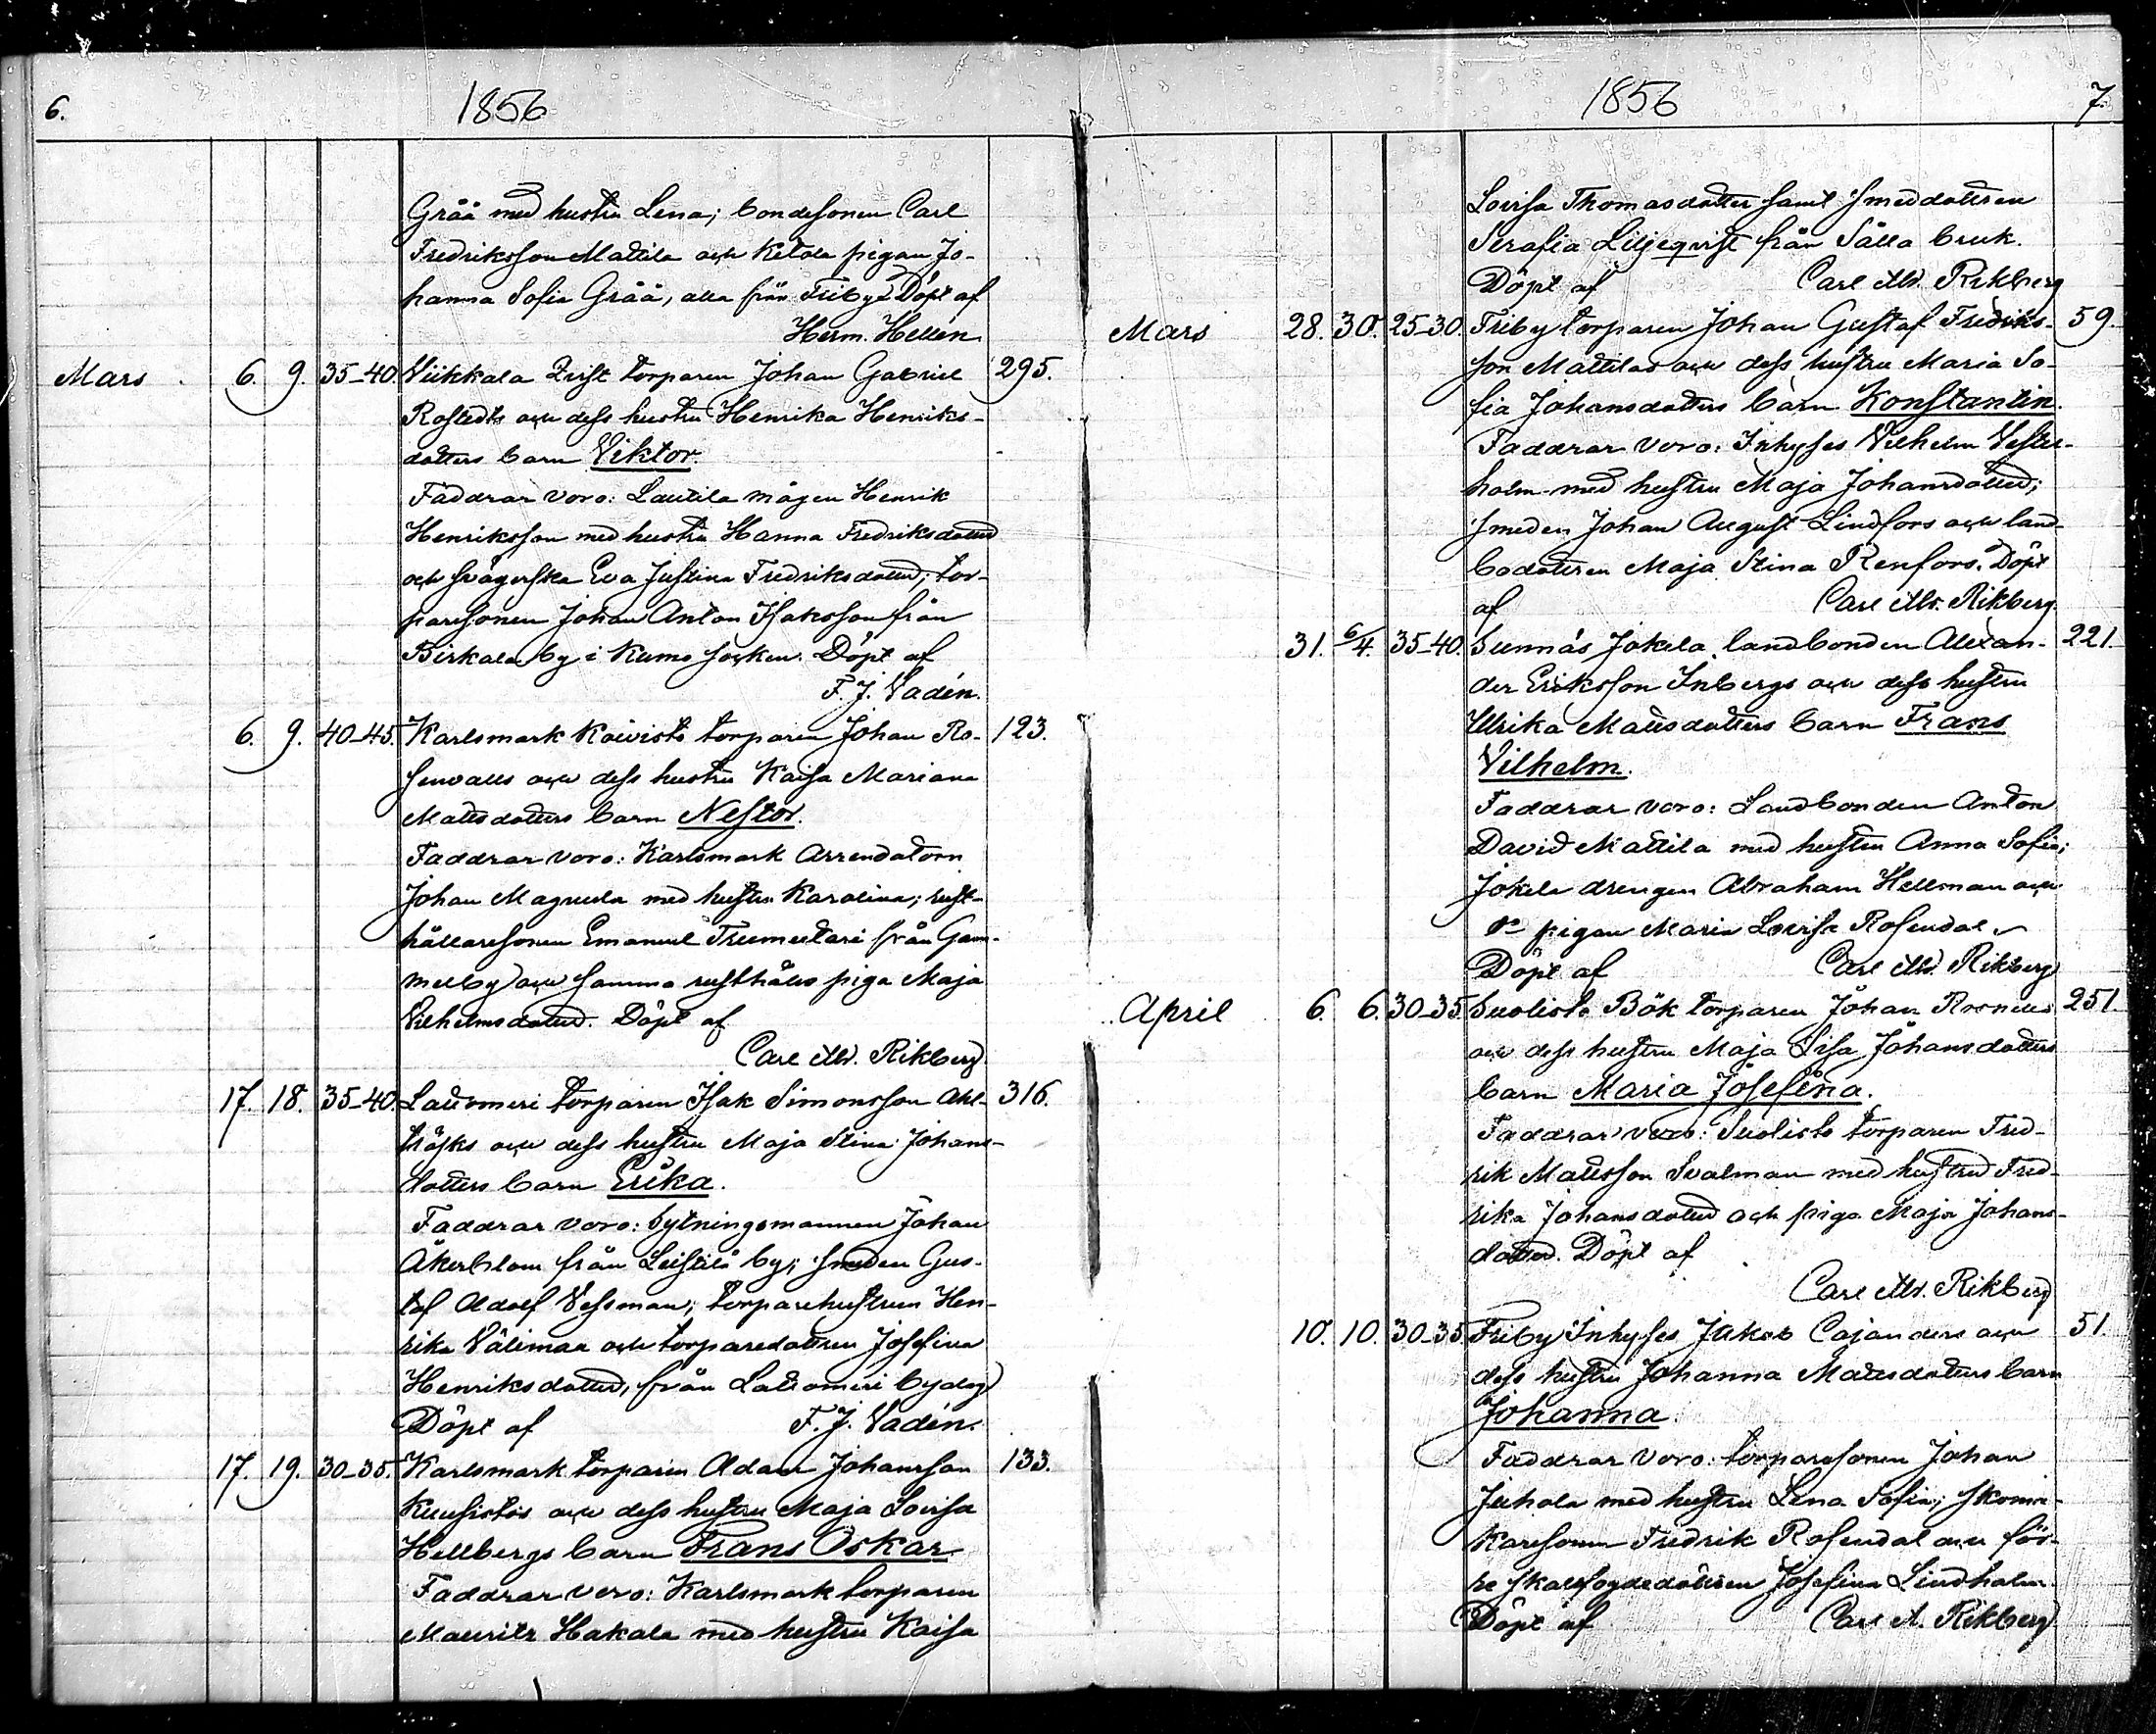 6.
1856
Gråå med hustru Lena; bondesonen Carl
Fredriksson Mattila och Ketola pigan Jo-
hanna Sofia Gråå, alla från Friby. Döpt af
Herm. Hellén
Mars 6. 9. 35-40. Viikkala Qvist torparen Johan Gabriel 295.
Rostedts och dess hustru Henrika Henriks-
dotters barn Viktor.
Faddrar voro: Lautila mågen Henrik
Henriksson med hustru Hanna Fredriksdotter
och svägerska Eva Justina Fredriksdotter; tor-
paresonen Johan Anton Isaksson från
Birkala by i Kumo socken. Döpt af
F. J. Vadén.
6. 9. 40-45. Karlsmark Koivisto torparen Johan Ro- 123.
senvalls och dess hustru Kaisa Mariana
Matsdotters barn Nestor.
Faddrar voro: Karlsmark Arrendatorn
Johan Magnula med hustru Karolina; rust-
hållaresonen Emanuel Trumetari från Gam-
melby och samma rusthålls piga Maja
Vilhelmsdotter. Döpt af
Carl M. Rikberg.
17. 18. 35-40. Lattomeri torparen Isak Simonsson Ahl- 316.
träsks och dess hustru Maja Stina Johans-
dotters barn Erika.
Faddrar voro: Sytningsmannen Johan
Åkerblom från Leistilä by; smeden Gus-
taf Adolf Vessman; torparehustrun Hen-
rika Välimaa och torparedottren Josefina
Henriksdotter, från Lattomeri by
Döpt af F. J. Vadén.
17. 19. 30-35. Karlsmark torparen Adam Johansson 133.
Kuusistos och dess hustru Maja Lovisa
Hellbergs barn Frans Oskar.
Faddrar voro: Karlsmark torparen
Mauritz Hakala med hustru Kaisa
1856
7.
Lovisa Thomasdotter samt smeddottren
Serafia Liljeqvist från Sålla bruk.
Döpt af Carl M. Rikberg
Mars 28. 30. 25-30. Friby torparen Johan Gustaf Fredriks- 59.
son Mattilas och dess hustru Maria So-
fia Johansdotters barn Konstantin.
Faddrar voro: Inhyses Vilhelm Vester-
holm med hustru Maja Johansdotter;
smeden Johan August Lindfors och land-
bodottren Maja Stina Renfors. Döpt
af Carl M. Rikberg.
31. 6/4. 35-40. Sunnäs Jokela landbonden Alexan- 221.
der Eriksson Inbergs och dess hustru
Ulrika Matsdotters barn Frans
Vilhelm.
Faddrar voro: Landbonden Anton
David Mattila med hustru Anna Sofia;
Jokela drengen Abraham Hellman och
do pigan Maria Lovisa Rosendal.
Döpt af Carl M. Rikberg
April 6. 6. 30-35. Suolisto Bök torparen Johan Rosnells 251.
och dess hustru Maja Lisa Johansdotters
barn Maria Josefina.
Faddrar voro: Suolisto torparen Fred-
rik Matsson Svalman med hustru Fred-
rika Johansdotter och piga Maja Johans-
dotter. Döpt af
Carl M. Rikberg
10. 10. 30-35. Friby Inhyses Jakob Cajanders och 51.
dess hustru Johanna Matsdotters barn
Johanna.
Faddrar voro: torparesonen Johan
Juhola med hustru Lena Sofia; skoma-
karesonen Fredrik Rosendal och för-
re skallfogdedottren Josefina Lindholm.
Döpt af Carl M. Rikberg